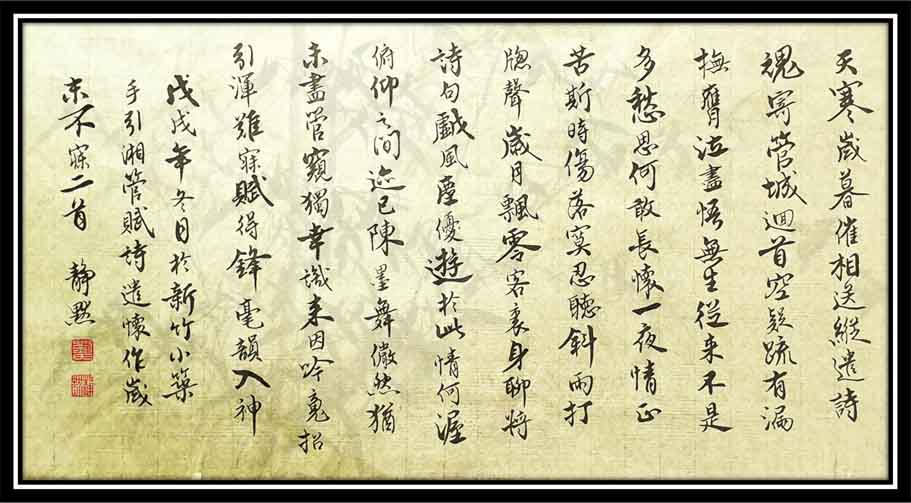 天寒歲暮催相送縱遣詩
魂寄管城迴首空疑疏有漏
撫膺泣盡悟無生從來不是
多愁思何敢長懷一夜情正
苦斯時傷落寞忍聽斜雨打
牕聲歲月飄零客裏身聊將
詩句戲風塵優遊於此情何渥
俯仰之間迹已陳墨舞儼然猶
未盡管窺獨幸識來因吟竟招
引渾難寐賦得鋒毫韻入神
戊戌年冬日於新竹小築
手引湘管賦詩遣懷作歲
末不寐二首 靜默